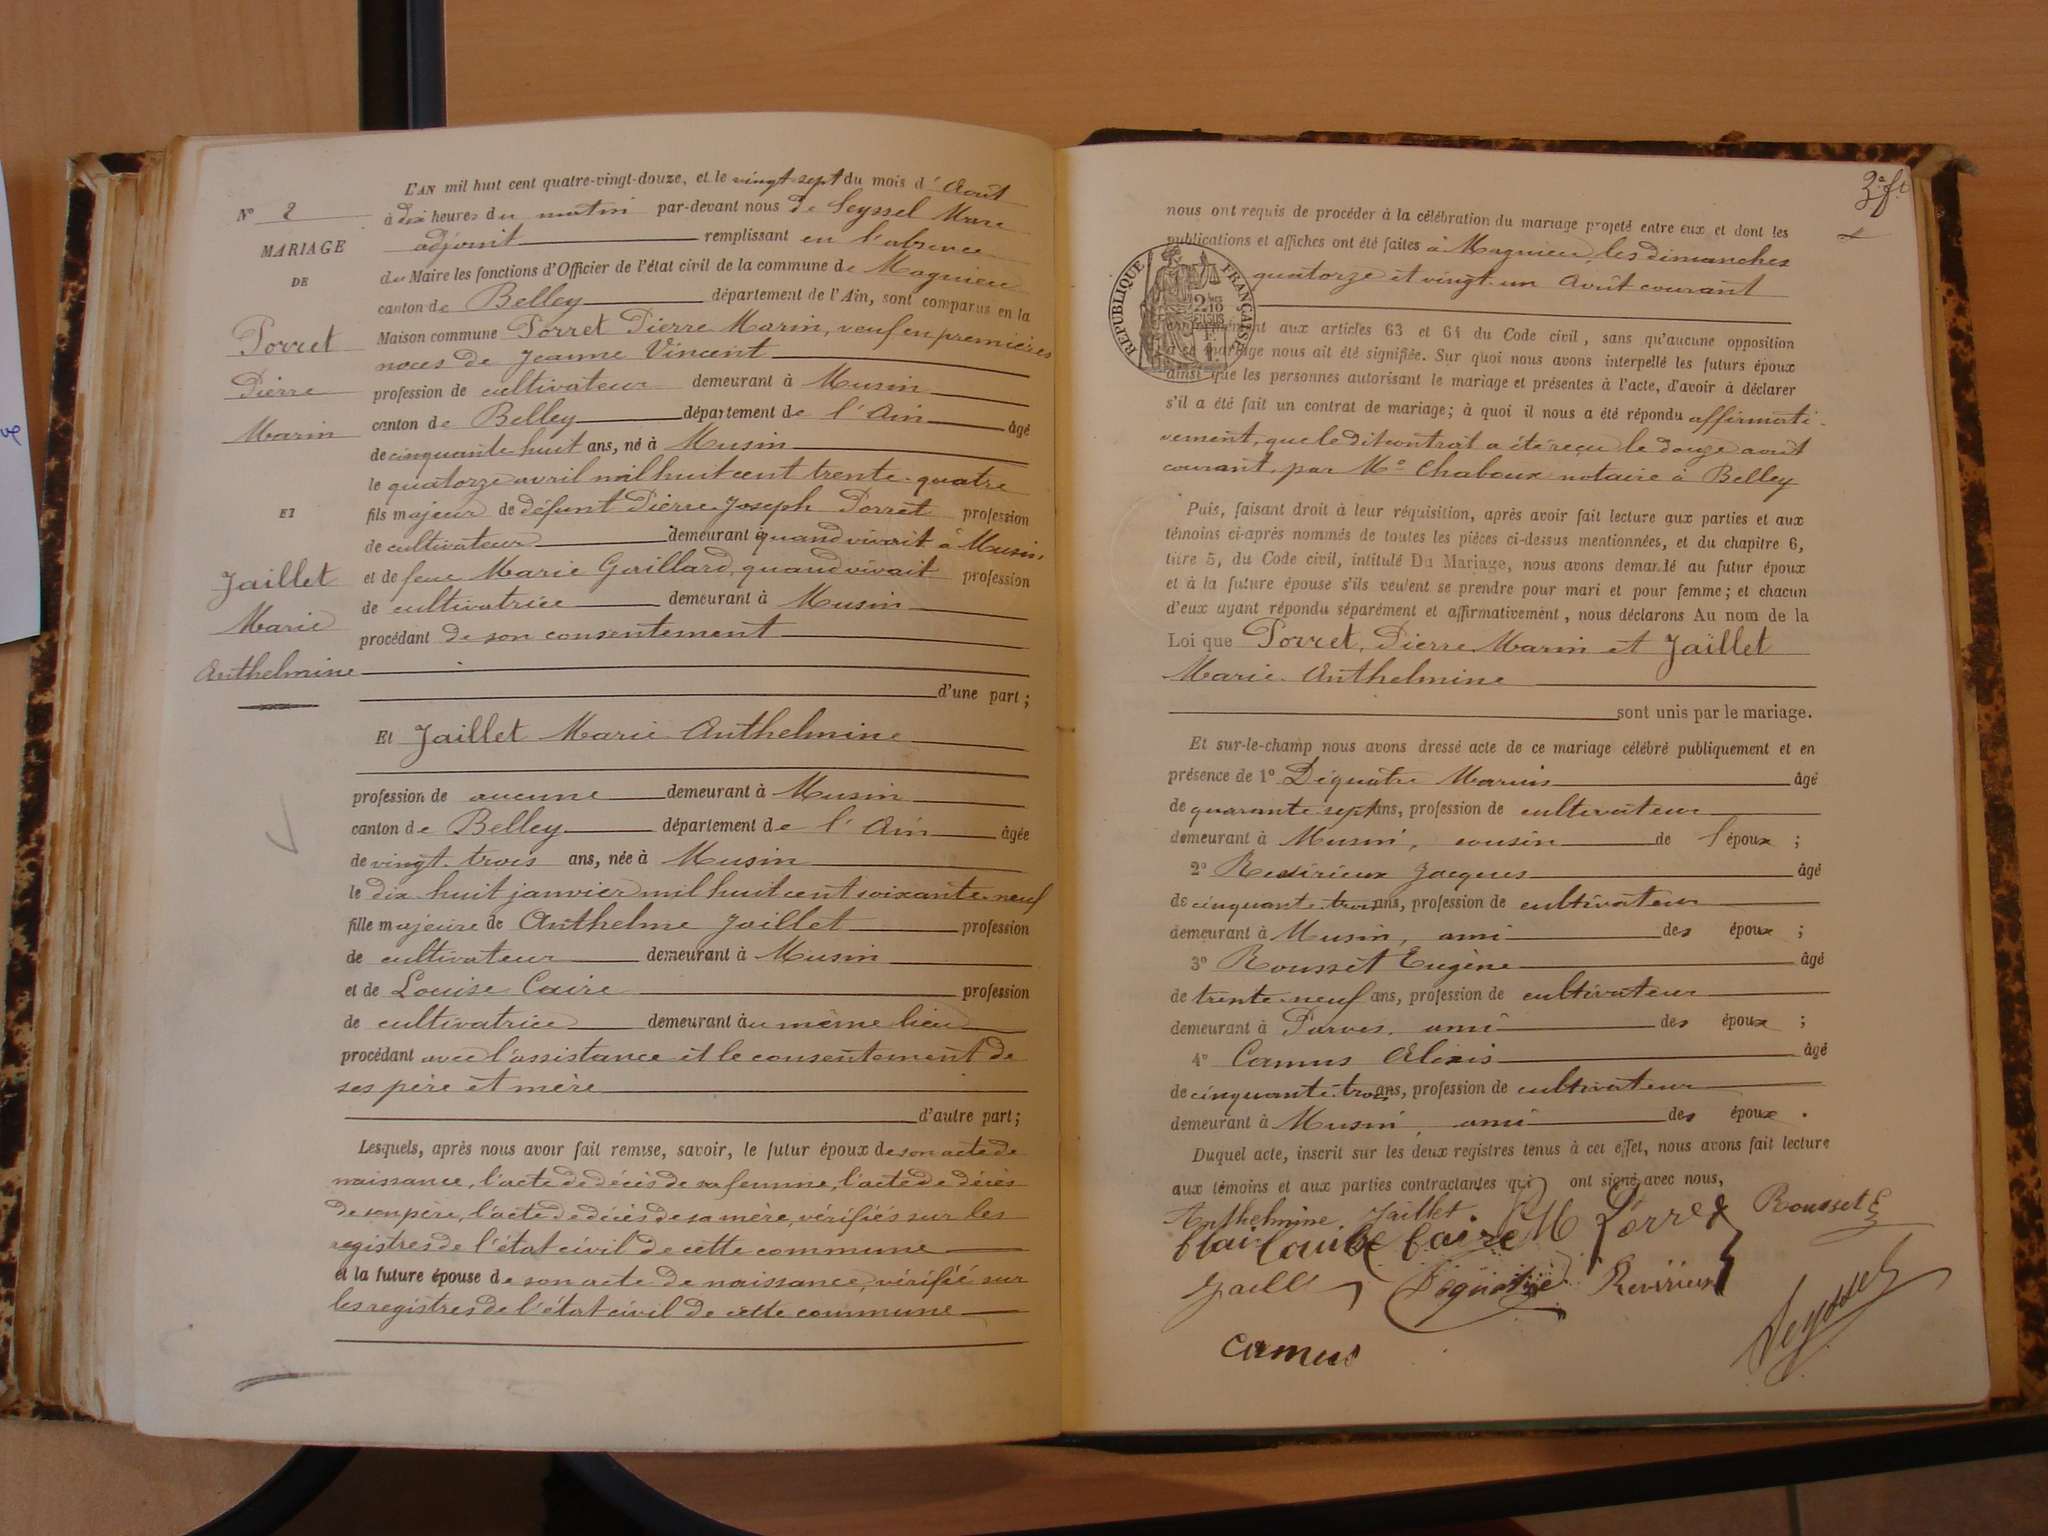 L'AN mil huit cent quatre-vingt-douze, et le vingt-sept du mois d'Août
à dix heures du matin par-devant nous de Seyssel Marc
adjoint remplissant en l'absence
du Maire les fonctions d'Officier de l'état civil de la commune de Magnieu
canton de Belley département de l'Ain, sont comparus en la
Maison commune Porret Pierre Marin, veuf en premières
noces de Jeanne Vincent
profession de cultivateur demeurant à Musin
canton de Belley département de l'Ain âgé
de cinquante huit ans, né à Musin
le quatorze avril mil huit cent trente-quatre
fils majeur de défunt Pierre Joseph Porret profession
de cultivateur demeurant quand vivait à Musin
et de feue Marie Guillard, quand vivait profession
de cultivatrice demeurant à Musin
procédant de son consentement
d'une part ;
Et Jaillet Marie Anthelmine
profession de aucune demeurant à Musin
canton de Belley département de l'Ain âgée
de vingt-trois ans, née à Musin
le dix-huit janvier mil huit cent soixante-neuf
fille majeure de Anthelme Jaillet profession
de cultivateur demeurant à Musin
et de Louise Caire profession
de cultivatrice demeurant au même lieu
procédant avec l'assistance et le consentement de
ses père et mère
d'autre part ;
Lesquels, après nous avoir fait remise, savoir, le futur époux de son acte de
naissance, l'acte de décès de sa femme, l'acte de décès
de son père, l'acte de décès de sa mère, vérifiés sur les
registres de l'état civil de cette commune
et la future épouse de son acte de naissance, vérifié sur
les registres de l'état civil de cette commune
N° 2
MARIAGE
DE
Porret
Pierre
Marin
ET
Jaillet
Marie
Anthelmine
3e ft
nous ont requis de procéder à la célébration du mariage projeté entre eux et dont les
publications et affiches ont été faites à Magnieu, les dimanches
quatorze et vingt-un Août courant
RÉPUBLIQUE FRANÇAISE
aux articles 63 et 64 du Code civil, sans qu'aucune opposition
à ce mariage nous ait été signifiée. Sur quoi nous avons interpellé les futurs époux
ainsi que les personnes autorisant le mariage et présentes à l'acte, d'avoir à déclarer
s'il a été fait un contrat de mariage ; à quoi il nous a été répondu affirmati-
vement, que le dit contrat a été reçu le douze août
courant, par Me Chaboux notaire à Belley
Puis, faisant droit à leur réquisition, après avoir fait lecture aux parties et aux
témoins ci-après nommés de toutes les pièces ci-dessus mentionnées, et du chapitre 6,
titre 5, du Code civil, intitulé Du Mariage, nous avons demandé au futur époux
et à la future épouse s'ils veulent se prendre pour mari et pour femme ; et chacun
d'eux ayant répondu séparément et affirmativement, nous déclarons Au nom de la
Loi que Porret, Pierre Marin et Jaillet
Marie Anthelmine
sont unis par le mariage.
Et sur-le-champ nous avons dressé acte de ce mariage célébré publiquement et en
présence de 1° Déquatre Marius âgé
de quarante-sept ans, profession de cultivateur
demeurant à Musin, cousin de l'époux ;
2° Revirieux Jacques âgé
de cinquante-trois ans, profession de cultivateur
demeurant à Musin, ami des époux ;
3° Rousset Eugène âgé
de trente-neuf ans, profession de cultivateur
demeurant à Parves, ami des époux ;
4° Camus Alexis âgé
de cinquante-trois ans, profession de cultivateur
demeurant à Musin, ami des époux.
Duquel acte, inscrit sur les deux registres tenus à cet effet, nous avons fait lecture
aux témoins et aux parties contractantes qui ont signé avec nous,
Anthelmine Jaillet PM Porret Rousset E
Louise Caire
Jaillet Déquatre Revirieux
Seyssel
Camus